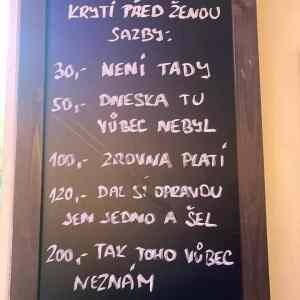 KRYTÍ PŘED ŽENOU
SAZBY:
30,- NENÍ TADY
50,- DNESKA TU
VŮBEC NEBYL
100,- ZROVNA PLATÍ
120,- DAL SI OPRAVDU
JEN JEDNO A ŠEL
200,- TAK TOHO VŮBEC
NEZNÁM